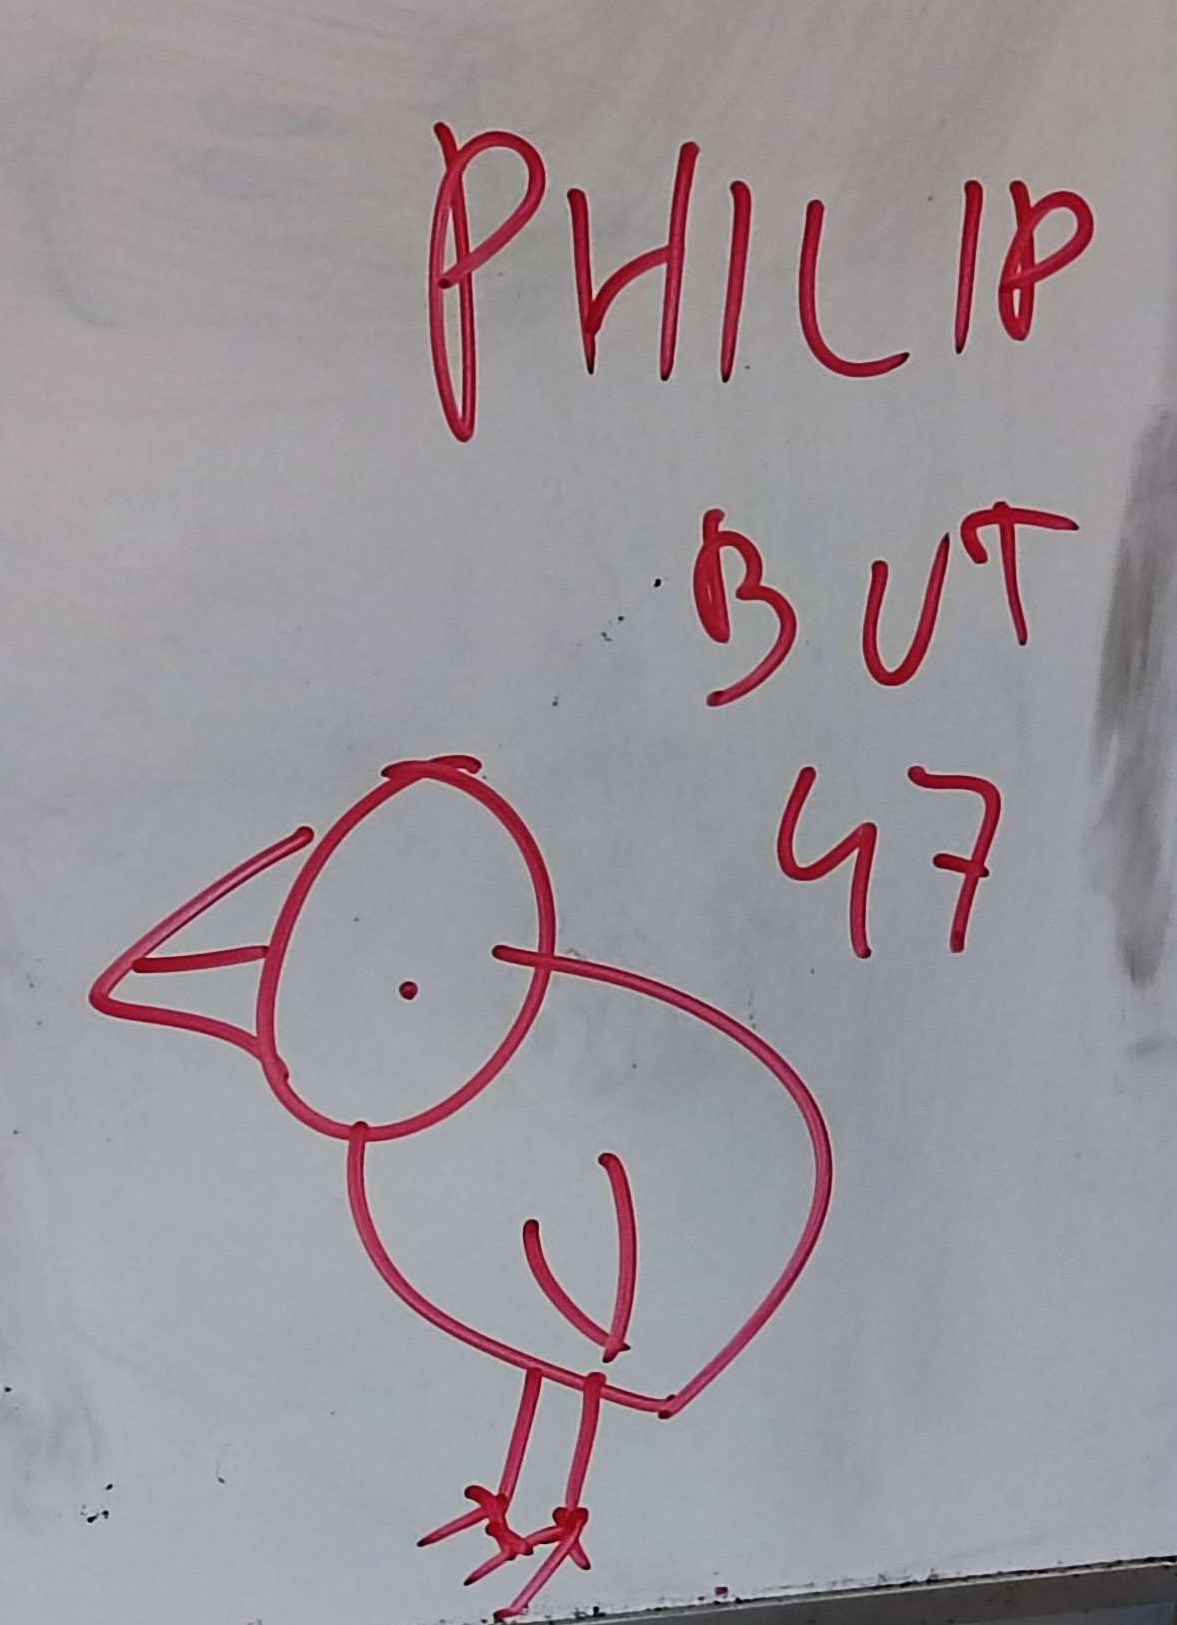 PHILIP
BUT
47